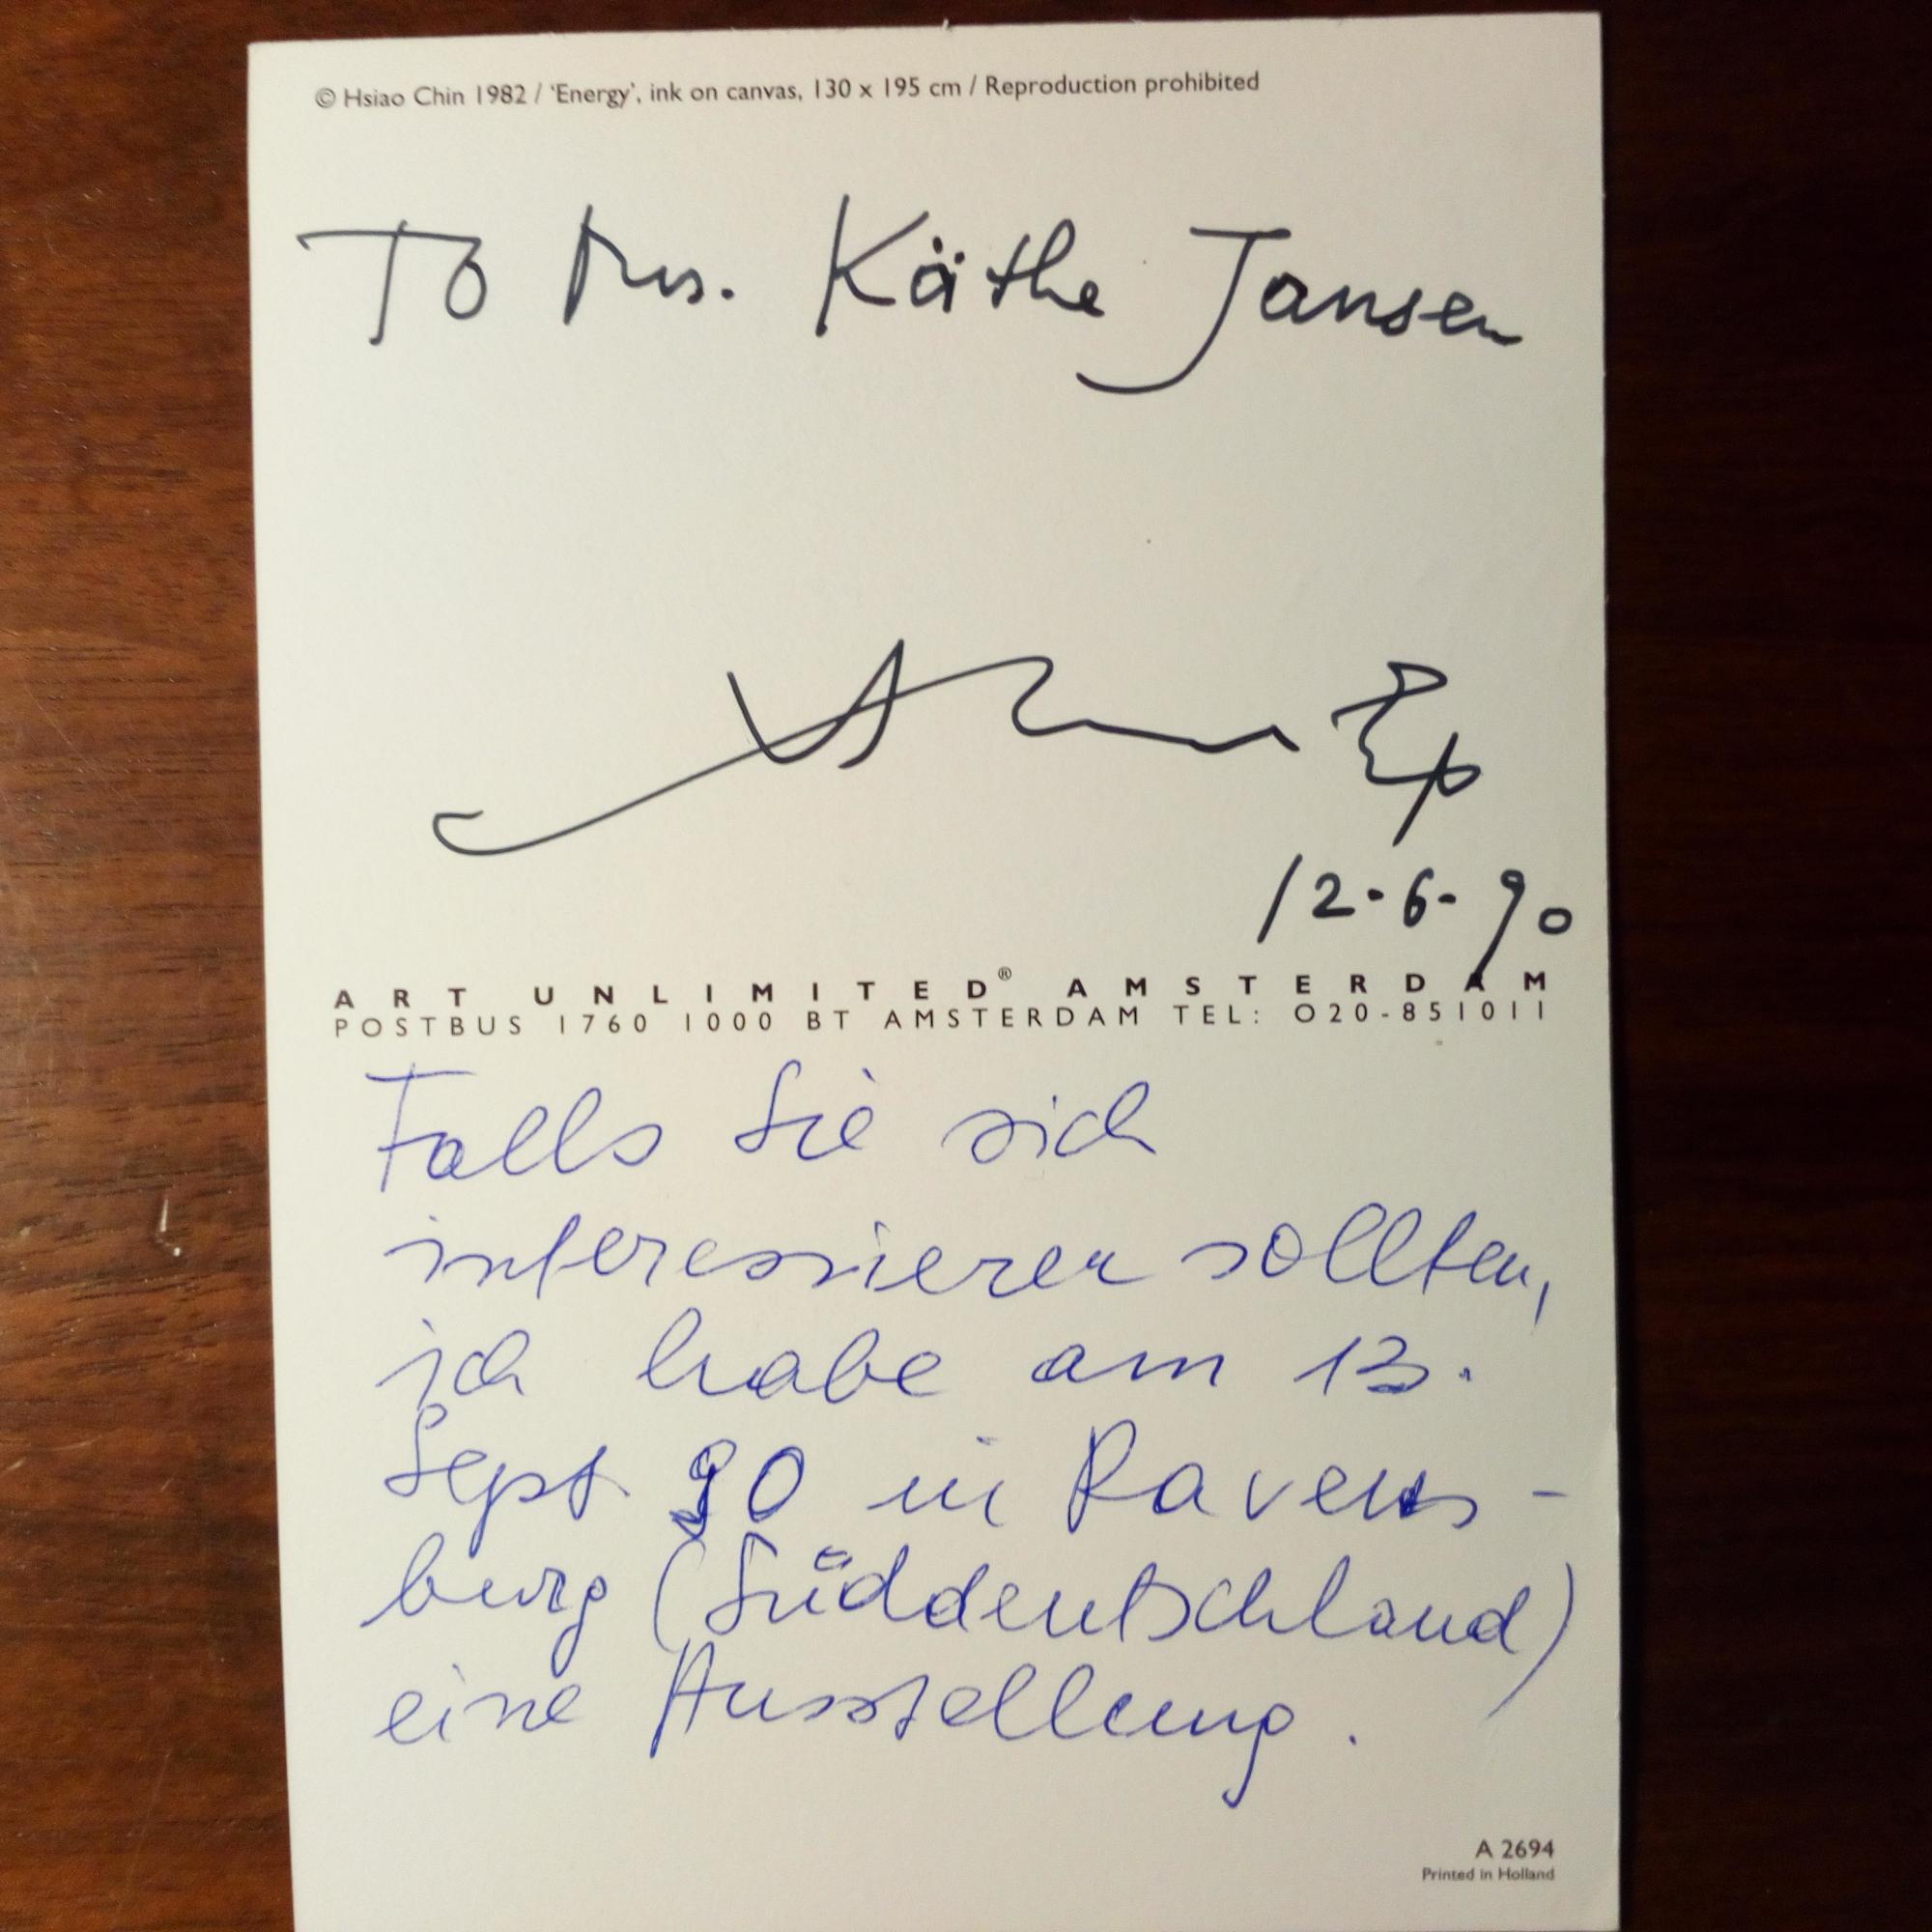 © Hsiao Chin 1982 / 'Energy', ink on canvas, 130 x 195 cm / Reproduction prohibited
To Mrs. Käthe Jansen
12-6-90
ART UNLIMITED® AMSTERDAM
POSTBUS 1760 1000 BT AMSTERDAM TEL: 020-851011
Falls Sie sich
interessieren sollten,
ich habe am 13.
Sept. 90 in Ravens-
burg (Süddeutschland)
eine Ausstellung.
A 2694
Printed in Holland